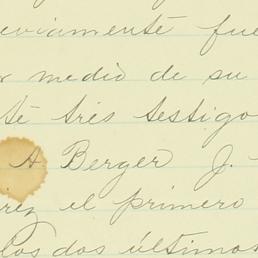 eviamente fue
r medio de su
te tres testigo
A Berger J.
rez el primero
los dos últimos